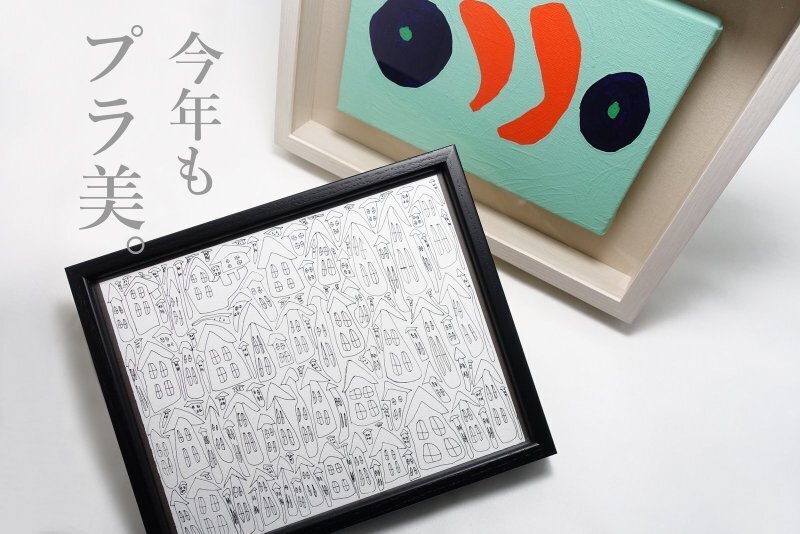 今年も
プラ美。